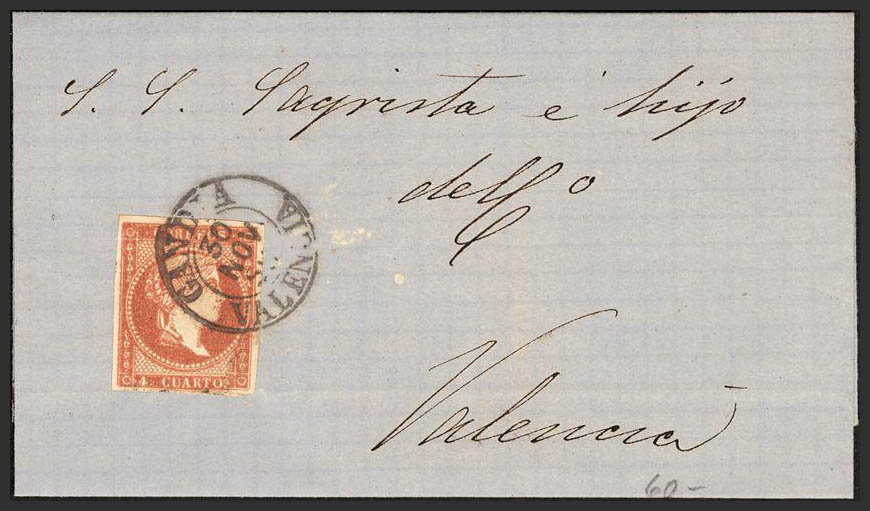 S. S. Sagrista é hijo
del Cº
Valencia
GANDIA
VALENCIA
30
NOV
4 CUARTOS
60-